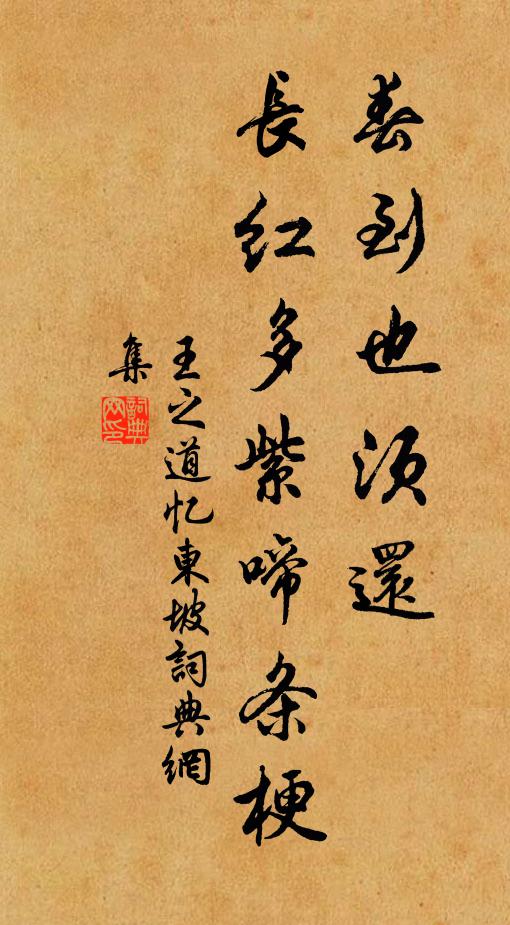 春到也须還
長红多紫啼条梗
王之道忆東坡詞典網
集
詞典网印